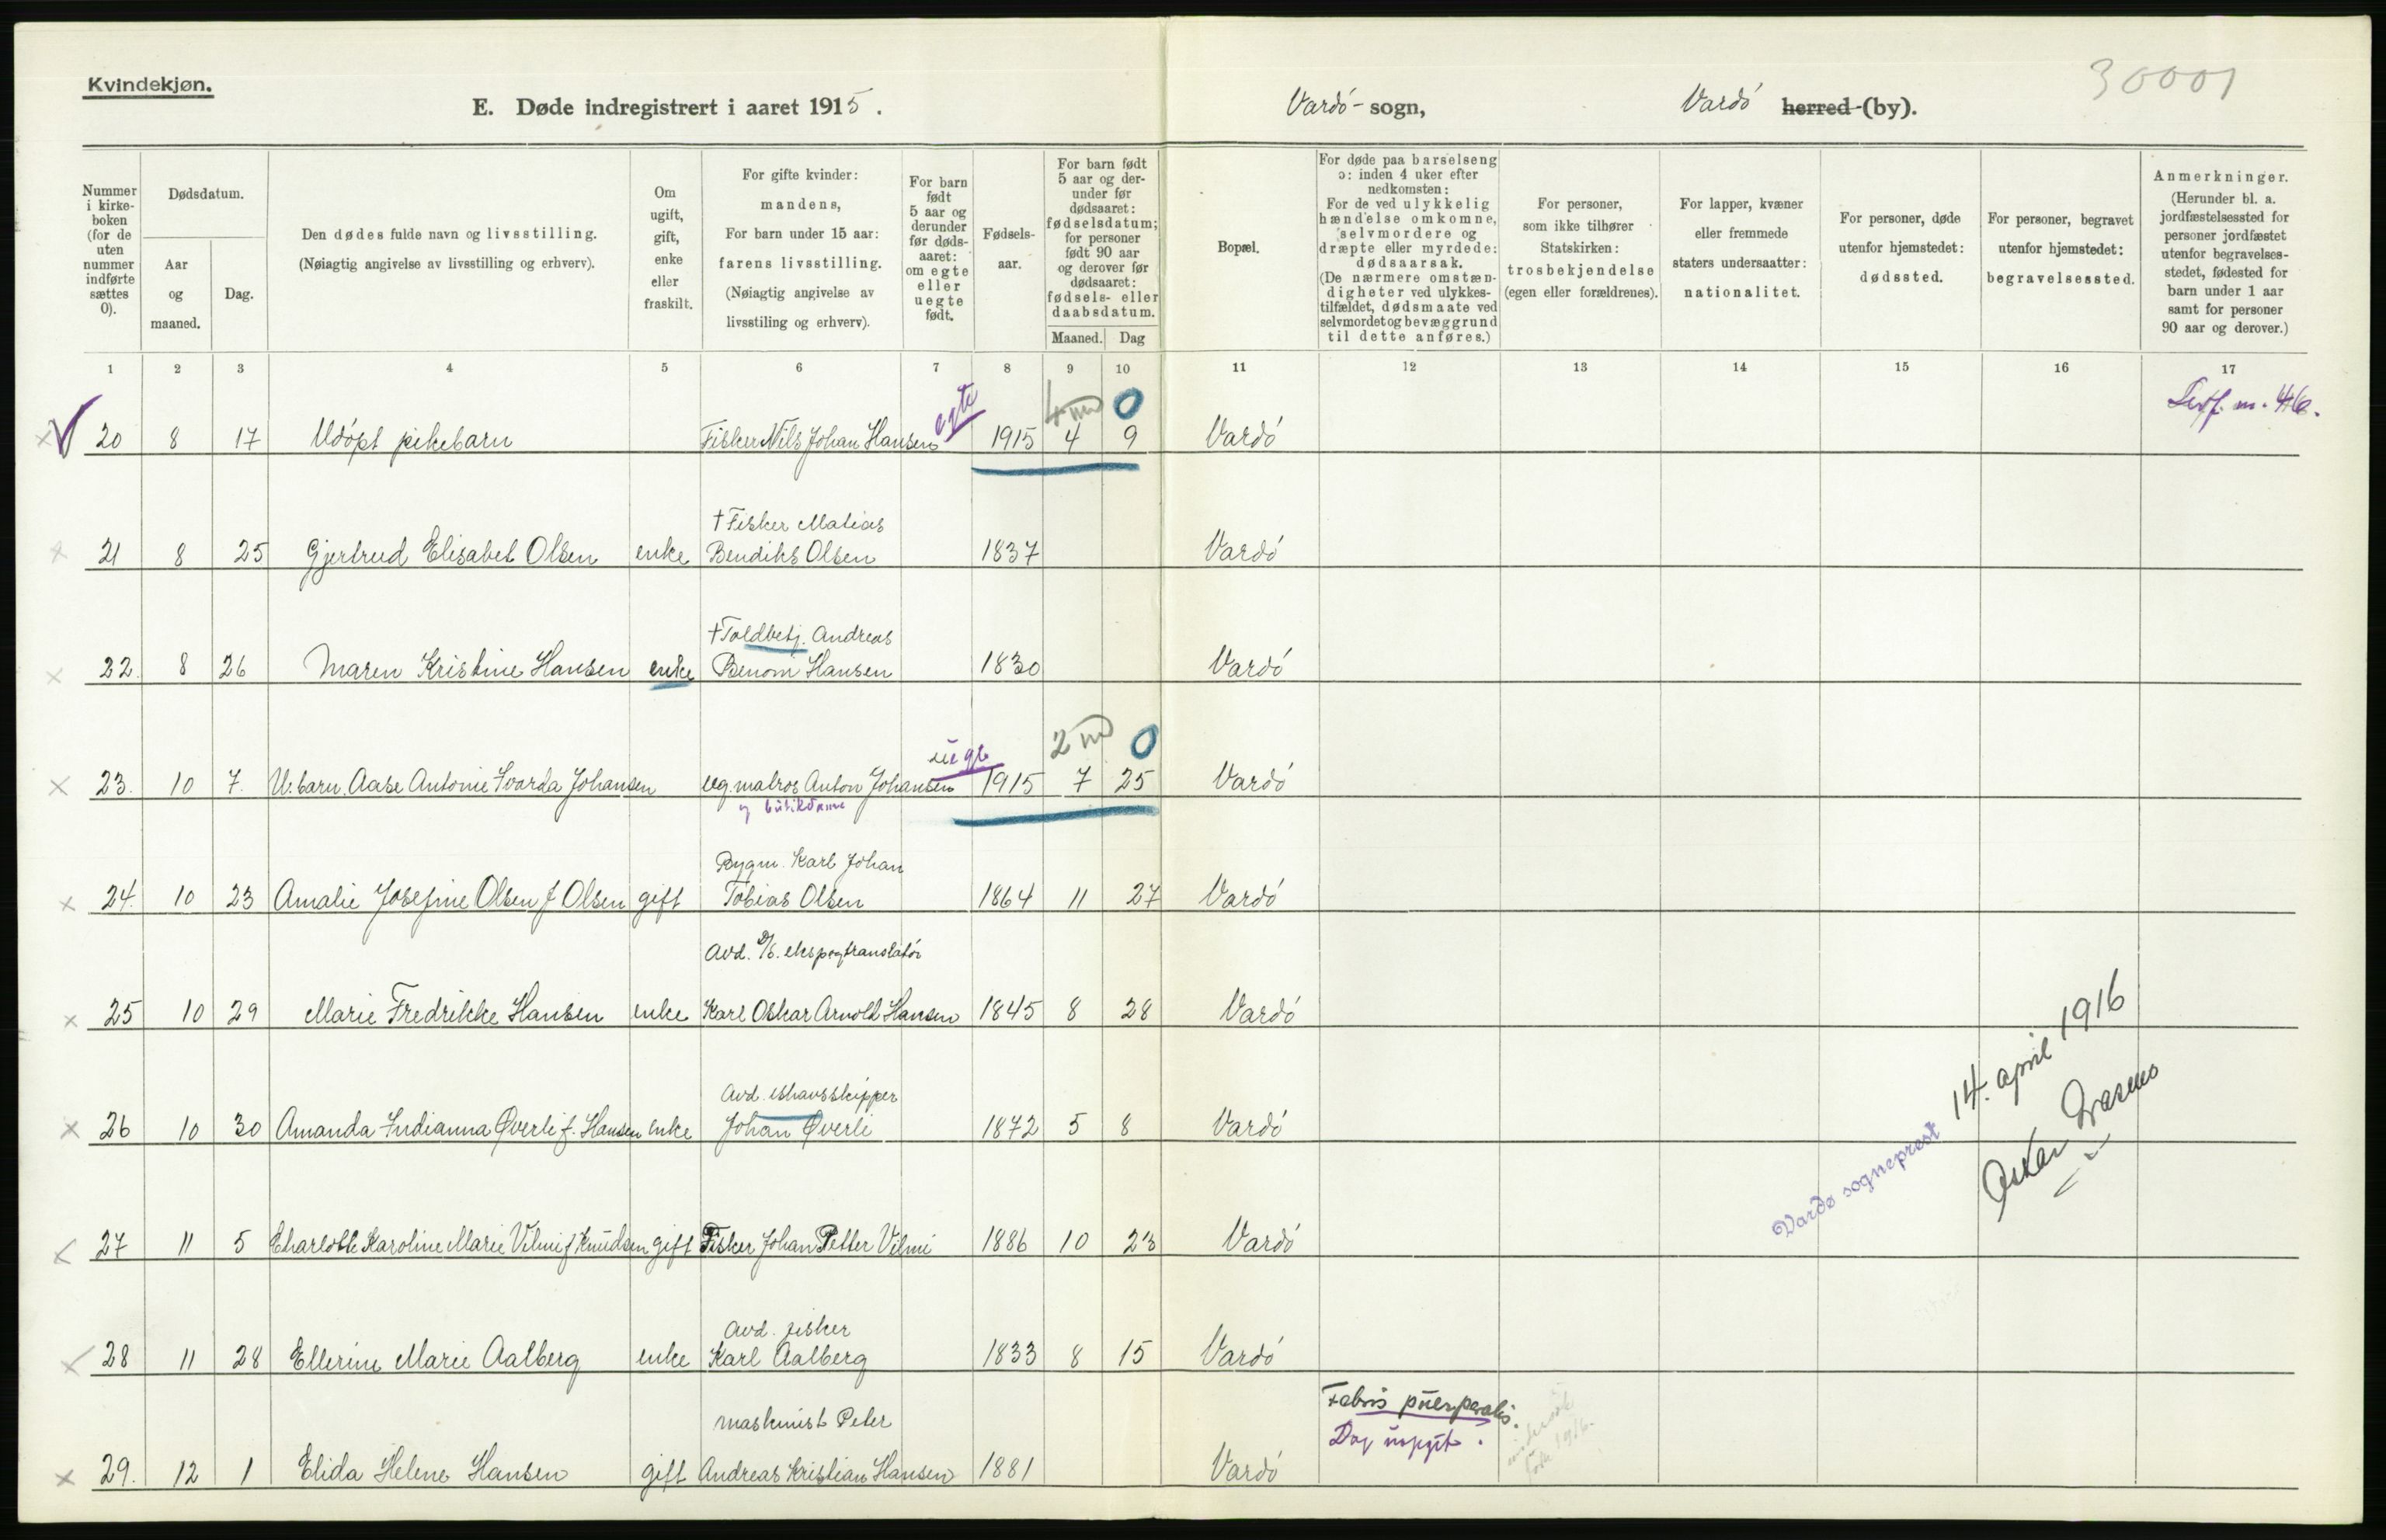 Kvindekjøn.
E. Døde indregistrert i aaret 1915.
Vardó - sogn,
Vardó herred (by).
30001
Nummer i kirkeboken (for de uten nummer indførte sættes 0).
Dødsdatum.
Aar og maaned.
Dag.
Den dødes fulde navn og livsstilling.
(Nøiagtig angivelse av livsstilling og erhverv).
Om ugift, gift, enke eller fraskilt.
For gifte kvinder: mandens,
For barn under 15 aar: farens livsstilling.
(Nøiagtig angivelse av livsstiling og erhverv).
For barn født 5 aar og derunder før dødsaaret: om egte eller uegte født.
Fødselsaar.
For barn født 5 aar og derunder før dødsaaret: fødselsdatum; for personer født 90 aar og derover før dødsaaret: fødsels- eller daabsdatum.
Maaned. Dag
Bopæl.
For døde paa barselseng ɔ: inden 4 uker efter nedkomsten:
For de ved ulykkelig hændelse omkomne, selvmordere og dræpte eller myrdede: dødsaarsak.
(De nærmere omstændigheter ved ulykkestilfældet, dødsmaate ved selvmordet og bevæggrund til dette anføres.)
For personer, som ikke tilhører Statskirken: trosbekjendelse (egen eller forældrenes).
For lapper, kvæner eller fremmede staters undersaatter: nationalitet.
For personer, døde utenfor hjemstedet: dødssted.
For personer, begravet utenfor hjemstedet: begravelsessted.
Anmerkninger.
(Herunder bl. a. jordfæstelsessted for personer jordfæstet utenfor begravelsesstedet, fødested for barn under 1 aar samt for personer 90 aar og derover.)
1 2 3 4 5 6 7 8 9 10 11 12 13 14 15 16 17
egte 4 md 0
20 8 17 Udópt pikebarn Fisker Nils Johan Hansen 1915 4 9 Vardó
† Fisker Matias
21 8 25 Gjertrud Elisabet Olsen enke Bendiks Olsen 1837 Vardó
† Toldbetj. Andreas
22. 8 26 Maren Kristine Hansen enke Benoni Hansen 1830 Vardó
uegte 2 md 0
23. 10 7. U. barn. Aase Antonie Svarda Johansen ug. matros Anton Johansen 1915 7 25 Vardó
Bygm. Karl Johan
24. 10 23 Amalie Josefine Olsen f Olsen gift Tobias Olsen 1864 11 27 Vardó
Avd. D/S. eksp og translatór
25 10 29 Marie Fredrikke Hansen enke Karl Oskar Arnold Hansen 1845 8 28 Vardó
Avd. ishavsskipper
26 10 30 Amanda Indianna Øverli f. Hansen enke Johan Øverli 1872 5 8 Vardó
27 11 5 Charlotte Karoline Marie Vilmi f Knudsen gift Fisker Johan Petter Vilmi 1886 10 23 Vardó
Avd. fisker
28 11 28 Ellerine Marie Aalberg enke Karl Aalberg 1833 8 15 Vardó
maskinist Peter
29. 12 1 Elida Helene Hansen gift Andreas Kristian Hansen 1881 Vardó
Febris puerperalis.
Dag uopgit.
Vardø sogneprest 14. april 1916
Oskar